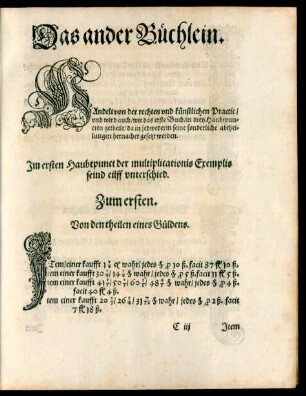 Das ander Büchlein.
Handelt von der rechten und künstlichen Practic/
und wird auch/ wie das erste Buch in zwen Haubtpun-
cten getheilt/ da in jedwederm seine sonderliche abthei-
lungen hernacher gesetz werden.
Im ersten Haubtpunct der multiplicationis Exemplis
seind eilff unterschied.
Zum ersten.
Von den theilen eines Güldens.
Item/ einer kaufft
wahr/ jedes ℔ p 10 ß. facit 87 fl 10 ß.
Item einer kaufft
wahr/ jedes ℔ p 5 ß. facit 11 fl 5 ß.
Item einer kaufft
wahr/ jedes ℔ p 4 ß.
facit 40 fl 4 ß.
Item einer kaufft
wahr/ jedes ℔ p 2 ß. facit
7 fl 18 ß.
C iij Item